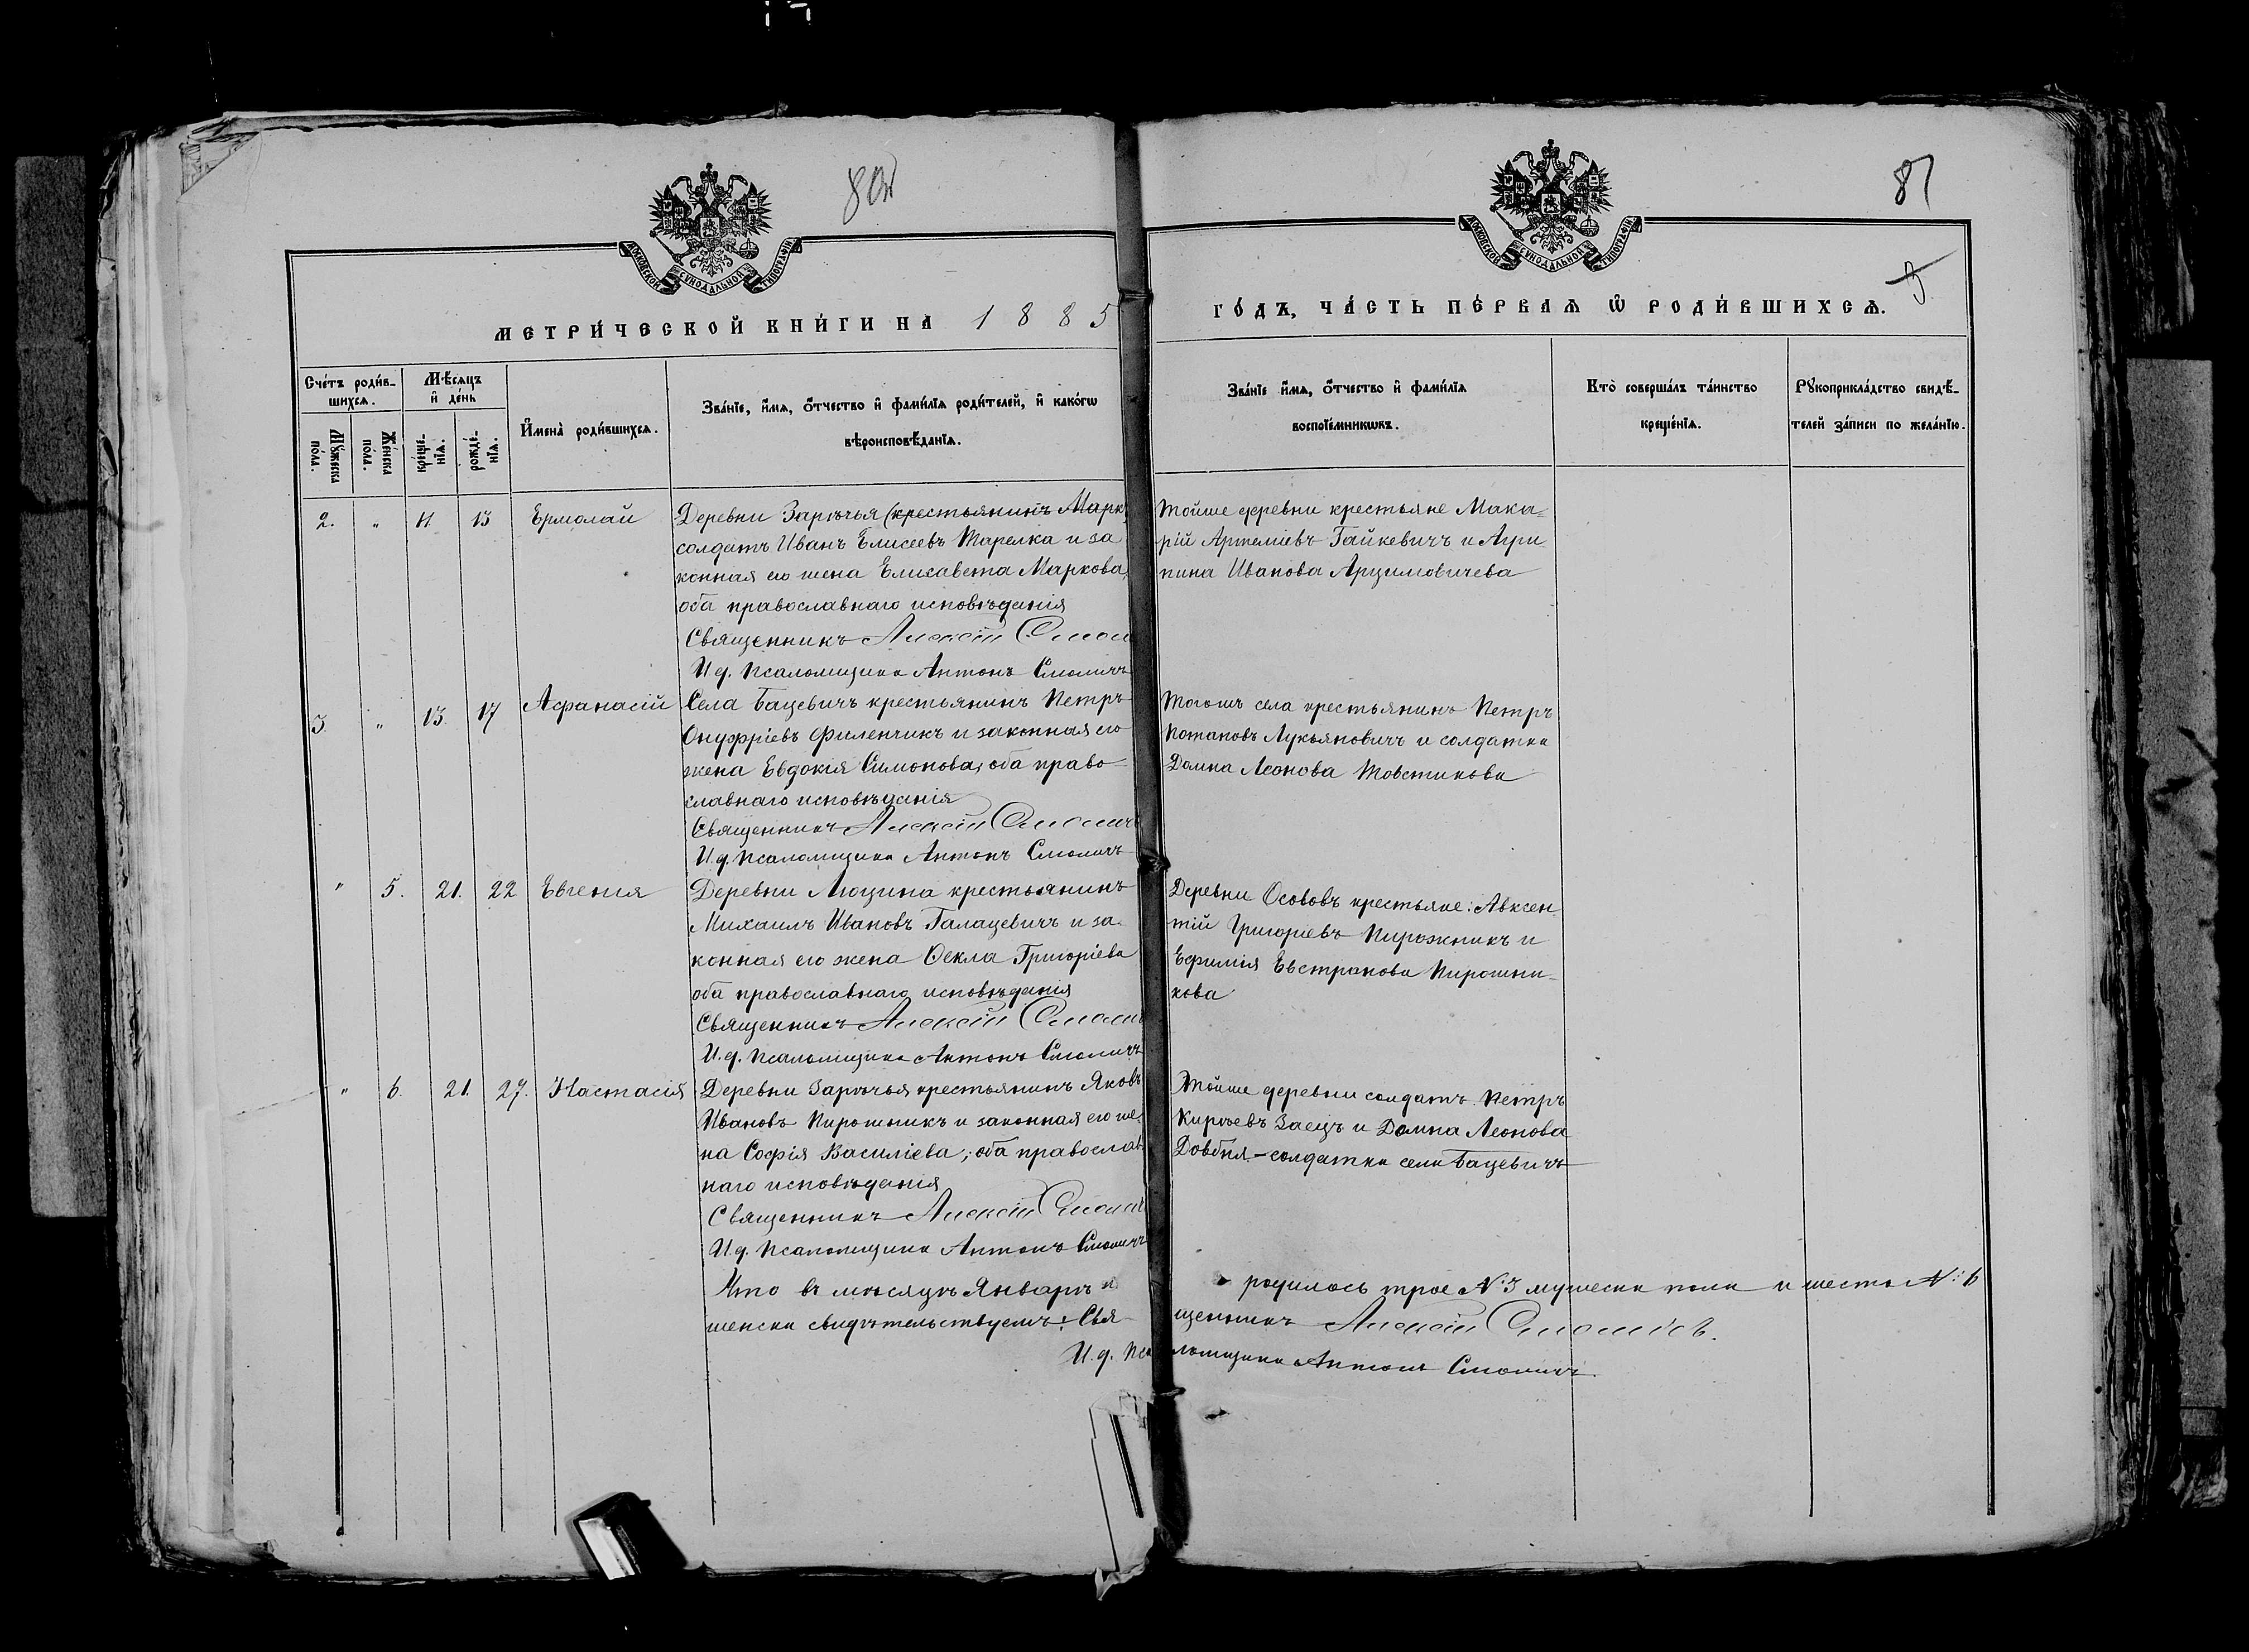 80об
81
МОСКОВСКОЙ СѴНОДАЛЬНОЙ ТИПОГРАФІИ
МОСКОВСКОЙ СѴНОДАЛЬНОЙ ТИПОГРАФІИ
МЕТРИ́ЧЕСКОЙ КНИ́ГИ НА 1885
ГО́ДЪ, ЧА́СТЬ ПЕ́РВАѦ Ѡ҆ РОДИ́ВШИХСѦ.
Сче́тъ роди́в-
шихсѧ.
Мꙋ́жеска
по́ла.
Же́нска
по́ла.
Мѣ́сѧцъ
и҆ де́нь
креще́-
нїѧ.
рожде́-
нїѧ.
И҆мена̀ роди́вшихсѧ.
Зва́нїе, и҆́мѧ, ѻ҆́тчество и҆ фами́лїѧ роди́телей, и҆ како́гѡ
вѣроисповѣ́данїѧ.
Зва́нїе и҆́мѧ, ѻ҆́тчество и҆ фами́лїѧ
воспрїе́мникѡвъ.
Кто̀ соверша́лъ та́инство
креще́нїѧ.
Рꙋкоприкла́дство свидѣ́-
телей за́писи по жела́нїю.
2. " 11. 13 Ермолай
Деревни Зарѣчья (крестьянинъ Марк
солдатъ Иванъ Елисеевъ Тарелка и за
конная его жена Елисавета Маркова,
оба православнаго исповѣданія
Священникъ Алексій Смол
И д. Псаломщика Антонъ Смоличъ
Тойже деревни крестьяне Мака=
рій Артеміевъ Гайкевичъ и Агри
пина Иванова Арцимовичева
3. " 13. 17 Афанасій
Села Бацевичъ крестьянинъ Петръ
Онуфріевъ Филенчикъ и законная его
жена Евдокія Симонова, оба право-
славнаго исповѣданія
Священникъ Алексій Смолич
И.д. Псаломщика Антонъ Смоличъ
Тогожъ села крестьянинъ Петръ
Потаповъ Лукьяновичъ и солдатка
Домна Леонова Товстикова
" 5. 21. 22 Евгенія
Деревни Люцина крестьянинъ
Михаилъ Ивановъ Галацевичъ и за-
конная его жена Ѳекла Григоріева
оба православнаго исповѣданія
Священникъ Алексій Смоли
И.д. Псаломщика Антонъ Смоличъ
Деревни Осововъ крестьяне: Авксен
тій Григоріевъ Пирожникъ и
Ефимія Евстратова Пирожни-
кова
" 6. 21. 27. Настасія
Деревни Зарѣчья крестьянинъ Яковъ
Ивановъ Пирожникъ и законная его же-
на Софія Василіева; оба православ
наго исповѣданія
Священникъ Алексій Смолич
И.д. Псаломщика Антонъ Смоличъ
Тойже деревни солдатъ Петръ
Кирѣевъ Заецъ и Домна Леонова
Довбня - солдатка села Бацевичъ
Что въ мѣсяцѣ Январѣ родилось трое № 3 мужеска пола и шесть № 6
женска свидѣтельствуемъ: Священникъ Алексій Смоличъ.
И.д. Псаломщика Антонъ Смоличъ.